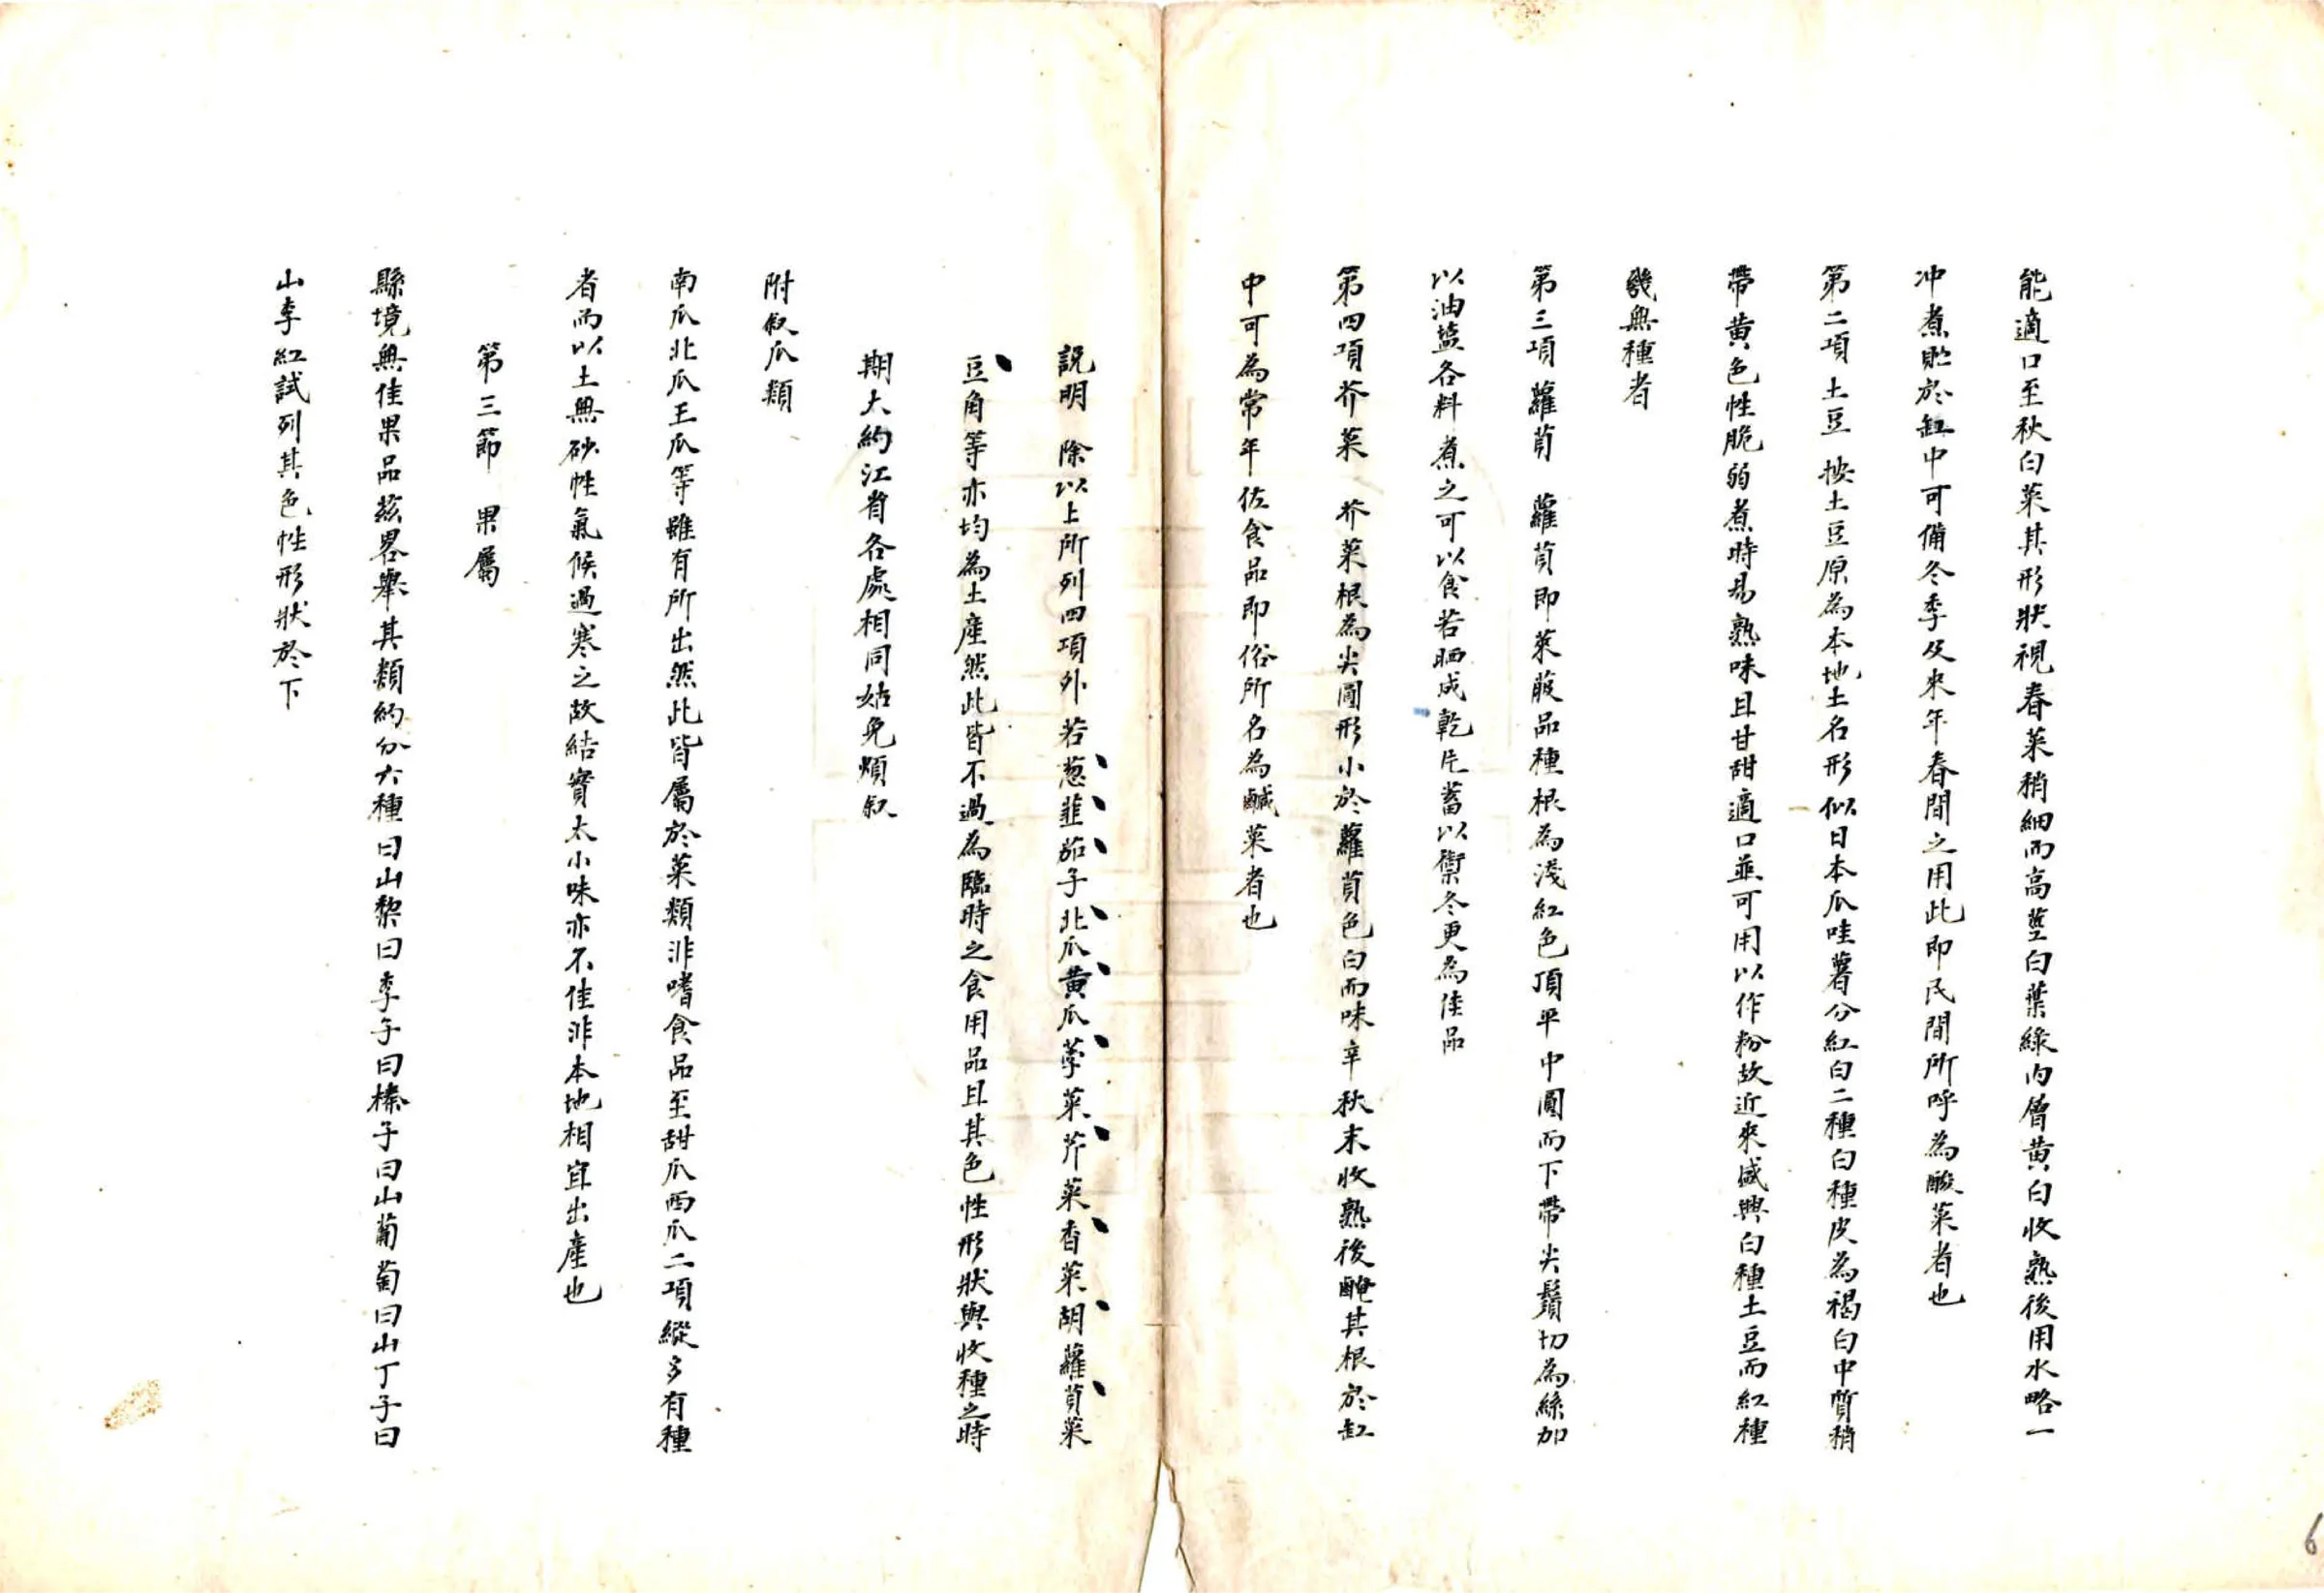 能適口至秋白菜其形狀視春菜稍細而高莖白葉綠內層黃白收熟後用水略一
冲煮貯於缸中可備冬季及來年春間之用此即民間所呼為酸菜者也
第二項 土豆 按土豆原為本地土名形似日本瓜哇薯分紅白二種白種皮為褐白中質稍
帶黃色性脆弱煮時易熟味且甘甜適口並可用以作粉故近來盛興白種土豆而紅種
幾無種者
第三項 蘿蔔 蘿蔔即萊菔品種根為淺紅色頂平中圓而下帶尖鬚切為絲加
以油鹽各料煮之可以食若晒成乾片蓄以禦冬更為佳品
第四項 芥菜 芥菜根為尖圓形小於蘿蔔色白而味辛秋末收熟後醃其根於缸
中可為常年佐食品即俗所名為鹹菜者也
說明 除以上所列四項外若葱韮茄子北瓜黃瓜莩菜芹菜香菜胡蘿蔔菜
豆角等亦均為土產然此皆不過為臨時之食用品且其色性形狀與收種之時
期大約江省各處相同姑免煩叙
附叙瓜類
南瓜北瓜王瓜等雖有所出然此皆屬於菜類非嗜食品至甜瓜西瓜二項縱多有種
者而以土無砂性氣候過寒之故結實太小味亦不佳非本地相宜出產也
第三節 果屬
縣境無佳果品茲畧舉其類約分六種曰山棃曰李子曰榛子曰山葡萄曰山丁子曰
山李紅試列其色性形狀於下
6